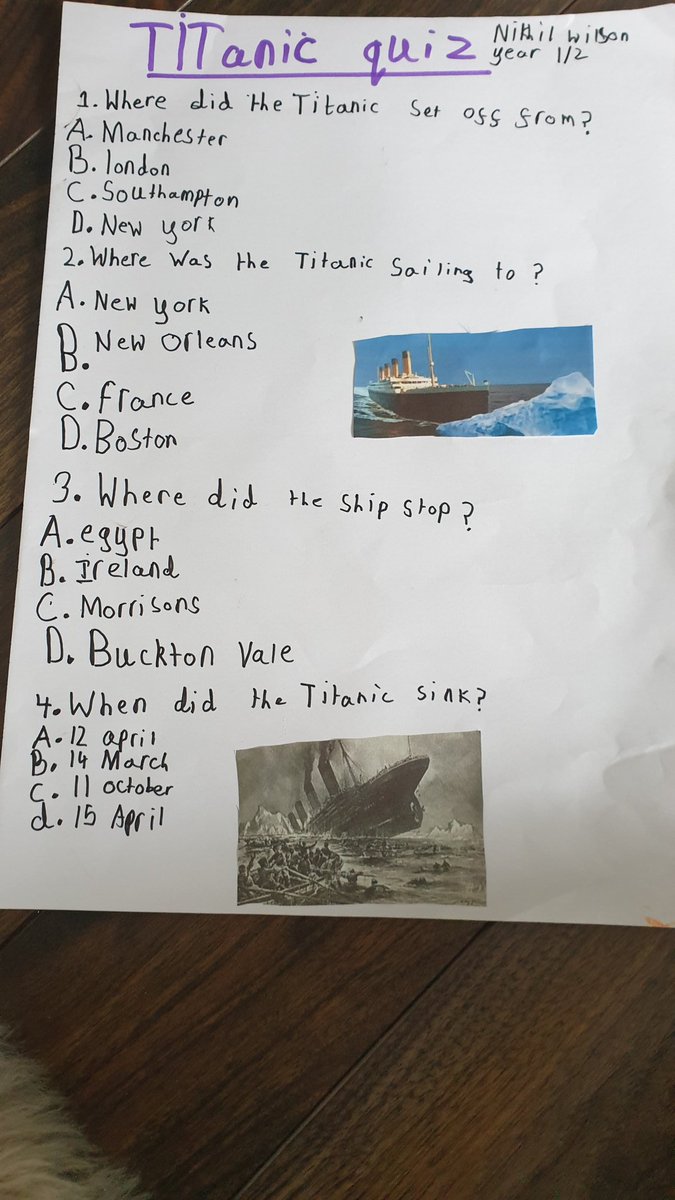 TITanic quiz
Nikhil Wilson
year 1/2
1. Where did the Titanic set off from?
A. Manchester
B. london
C. Southampton
D. New york
2. Where was the Titanic Sailing to ?
A. New york
B. New Orleans
C. france
D. Boston
3. Where did the Ship Stop?
A. egypt
B. Ireland
C. Morrisons
D. Buckton Vale
4. When did the Titanic Sink?
A. 12 april
B. 14 March
C. 11 october
d. 15 April